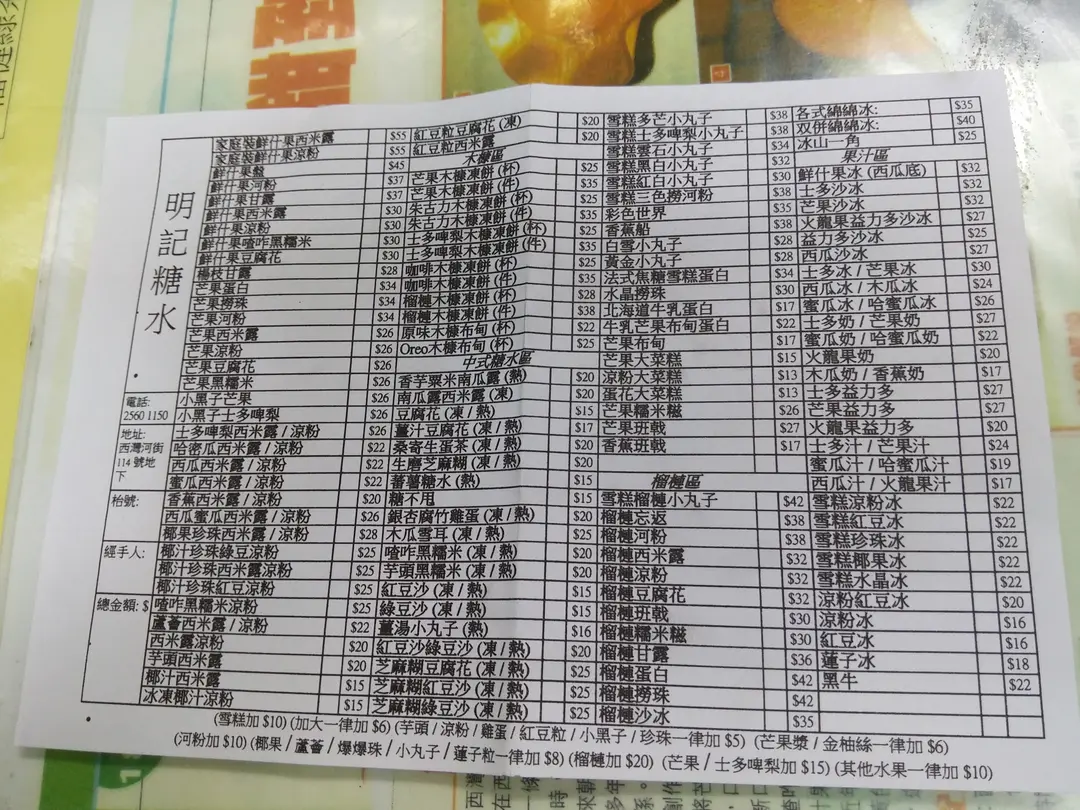 明記糖水
電話:
2560 1150
地址:
西灣河街
114 號地
下
枱號:
經手人:
總金額: $
家庭裝鮮什果西米露 $55
家庭裝鮮什果涼粉 $55
鮮什果盤 $45
鮮什果河粉 $37
鮮什果甘露 $37
鮮什果西米露 $30
鮮什果涼粉 $30
鮮什果喳咋黑糯米 $30
鮮什果豆腐花 $30
楊枝甘露 $28
芒果蛋白 $34
芒果撈珠 $34
芒果河粉 $34
芒果西米露 $26
芒果涼粉 $26
芒果豆腐花 $26
芒果黑糯米 $26
小黑子芒果 $26
小黑子士多啤梨 $26
士多啤梨西米露 / 涼粉 $26
哈密瓜西米露 / 涼粉 $22
西瓜西米露 / 涼粉 $22
蜜瓜西米露 / 涼粉 $22
香蕉西米露 / 涼粉 $20
西瓜蜜瓜西米露 / 涼粉 $26
椰果珍珠西米露 / 涼粉 $28
椰汁珍珠綠豆涼粉 $25
椰汁珍珠西米露涼粉 $25
椰汁珍珠紅豆涼粉 $25
喳咋黑糯米涼粉 $25
蘆薈西米露 / 涼粉 $22
西米露涼粉 $20
芋頭西米露 $20
椰汁西米露 $15
冰凍椰汁涼粉 $15
紅豆粒豆腐花 (凍) $20
紅豆粒西米露
木糠區
芒果木糠凍餅 (杯) $25
芒果木糠凍餅 (件) $35
朱古力木糠凍餅 (杯) $25
朱古力木糠凍餅 (件) $35
士多啤梨木糠凍餅 (杯) $25
士多啤梨木糠凍餅 (件) $35
咖啡木糠凍餅 (杯) $25
咖啡木糠凍餅 (件) $35
榴槤木糠凍餅 (杯) $28
榴槤木糠凍餅 (件) $38
原味木糠布甸 (杯) $22
Oreo木糠布甸 (杯) $25
中式糖水區
香芋粟米南瓜露 (熱) $20
南瓜露西米露 (凍) $20
豆腐花 (凍 / 熱) $15
薑汁豆腐花 (凍 / 熱) $17
桑寄生蛋茶 (凍 / 熱) $20
生磨芝麻糊 (凍 / 熱) $20
蕃薯糖水 (熱) $15
糖不甩 $15
銀杏腐竹雞蛋 (凍 / 熱) $20
木瓜雪耳 (凍 / 熱) $25
喳咋黑糯米 (凍 / 熱) $20
芋頭黑糯米 (凍 / 熱) $25
紅豆沙 (凍 / 熱) $15
綠豆沙 (凍 / 熱) $15
薑湯小丸子 (熱) $16
紅豆沙綠豆沙 (凍 / 熱) $20
芝麻糊豆腐花 (凍 / 熱) $25
芝麻糊紅豆沙 (凍 / 熱) $25
芝麻糊綠豆沙 (凍 / 熱) $25
雪糕多芒小丸子 $38
雪糕士多啤梨小丸子 $38
雪糕雲石小丸子 $34
雪糕黑白小丸子 $32
雪糕紅白小丸子 $30
雪糕三色撈河粉 $38
彩色世界 $35
香蕉船 $38
白雪小丸子 $28
黃金小丸子 $28
法式焦糖雪糕蛋白 $34
水晶撈珠 $30
北海道牛乳蛋白 $17
牛乳芒果布甸蛋白 $22
芒果布甸 $17
芒果大菜糕 $15
涼粉大菜糕 $13
蛋花大菜糕 $13
芒果糯米糍 $26
芒果班戟 $27
香蕉班戟 $17
榴槤區
雪糕榴槤小丸子 $42
榴槤忘返 $38
榴槤河粉 $38
榴槤西米露 $32
榴槤涼粉 $32
榴槤豆腐花 $32
榴槤班戟 $30
榴槤糯米糍 $30
榴槤甘露 $36
榴槤蛋白 $42
榴槤撈珠 $42
榴槤沙冰 $35
各式綿綿冰: $35
双併綿綿冰: $40
冰山一角 $25
果汁區
鮮什果冰 (西瓜底) $32
士多沙冰 $32
芒果沙冰 $32
火龍果益力多沙冰 $27
益力多沙冰 $25
西瓜沙冰 $27
士多冰 / 芒果冰 $30
西瓜冰 / 木瓜冰 $24
蜜瓜冰 / 哈蜜瓜冰 $26
士多奶 / 芒果奶 $27
蜜瓜奶 / 哈蜜瓜奶 $22
火龍果奶 $20
木瓜奶 / 香蕉奶 $17
士多益力多 $27
芒果益力多 $27
火龍果益力多 $20
士多汁 / 芒果汁 $24
蜜瓜汁 / 哈蜜瓜汁 $19
西瓜汁 / 火龍果汁 $17
雪糕涼粉冰 $22
雪糕紅豆冰 $22
雪糕珍珠冰 $22
雪糕椰果冰 $22
雪糕水晶冰 $22
涼粉紅豆冰 $20
涼粉冰 $16
紅豆冰 $16
蓮子冰 $18
黑牛 $22
(雪糕加 $10) (加大一律加 $6) (芋頭 / 涼粉 / 雞蛋 / 紅豆粒 / 小黑子 / 珍珠一律加 $5) (芒果漿 / 金柚絲一律加 $6)
(河粉加 $10) (椰果 / 蘆薈 / 爆爆珠 / 小丸子 / 蓮子粒一律加 $8) (榴槤加 $20) (芒果 / 士多啤梨加 $15) (其他水果一律加 $10)